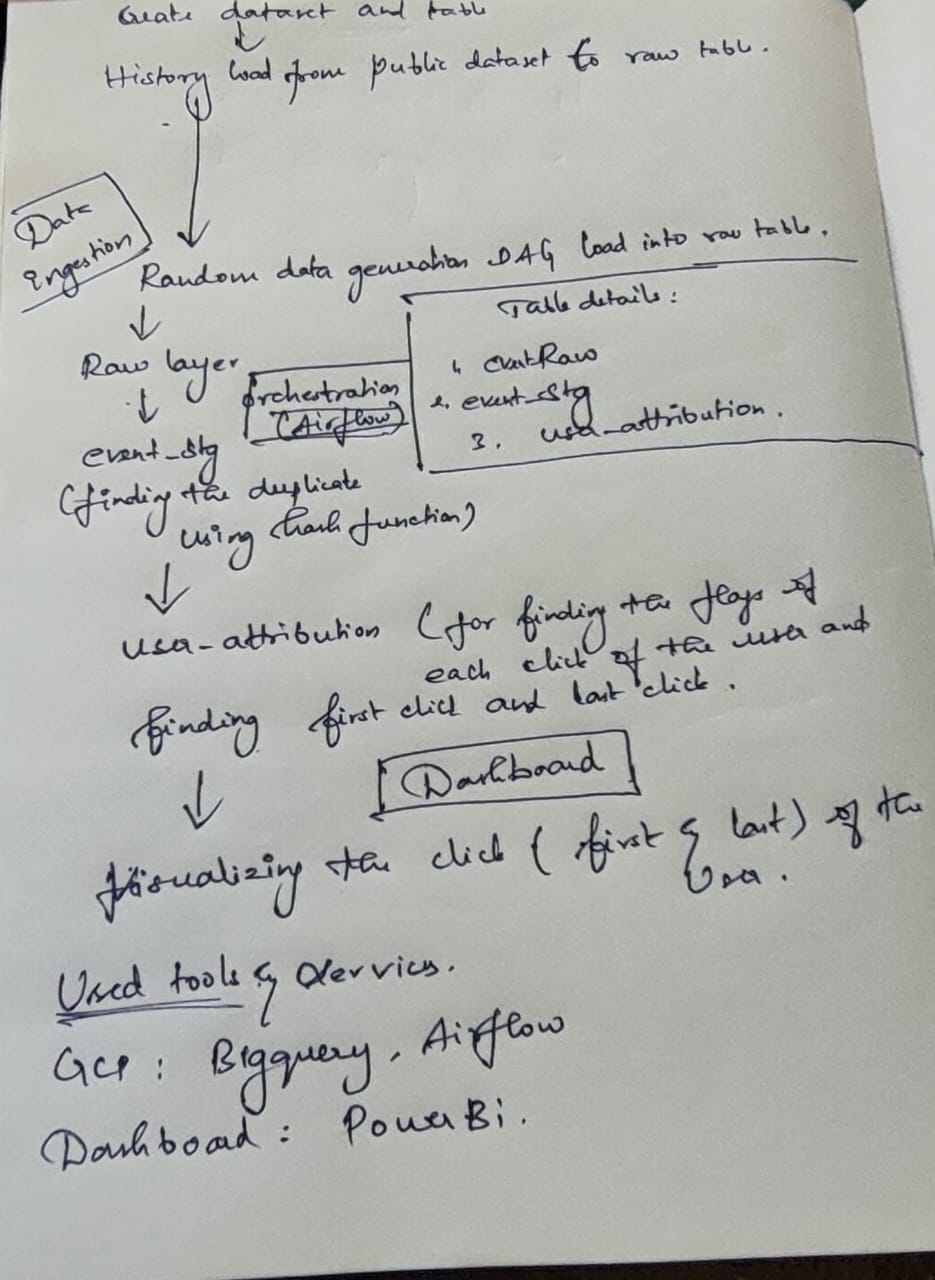 Create dataset and table
History load from public dataset to raw table.
Data
ingestion
Random data generation DAG load into raw table.
Table details:
1. eventRaw
2. event_stg
3. user_attribution.
Raw layer
Orchestration
(Airflow)
event_stg
(finding the duplicate
using hash function)
user-attribution (for finding the flags of
each click of the user and
finding first click and last click.
Dashboard
Visualizing the click (first & last) of the
User.
Used tools & Services.
GCP: Bigquery, Airflow
Dashboard: PowerBi.